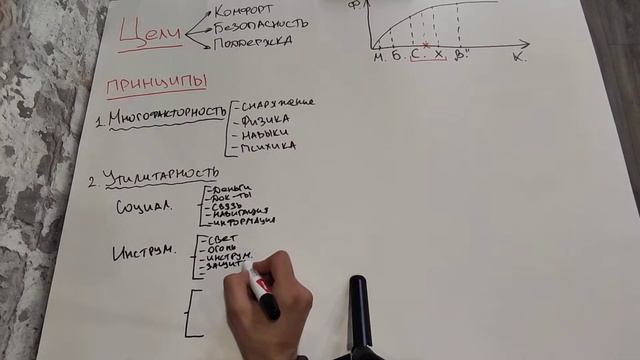 Цели
Комфорт
Безопасность
Поддержка
Ф
М. Б. С. Х. В." К.
Принципы
1. Многофакторность
- Снаряжение
- Физика
- Навыки
- Психика
2. Утилитарность
Социал.
- Деньги
- Док-ты
- Связь
- Навигация
- Информация
Инструм.
- Свет
- Огонь
- Инструм.
- Защит